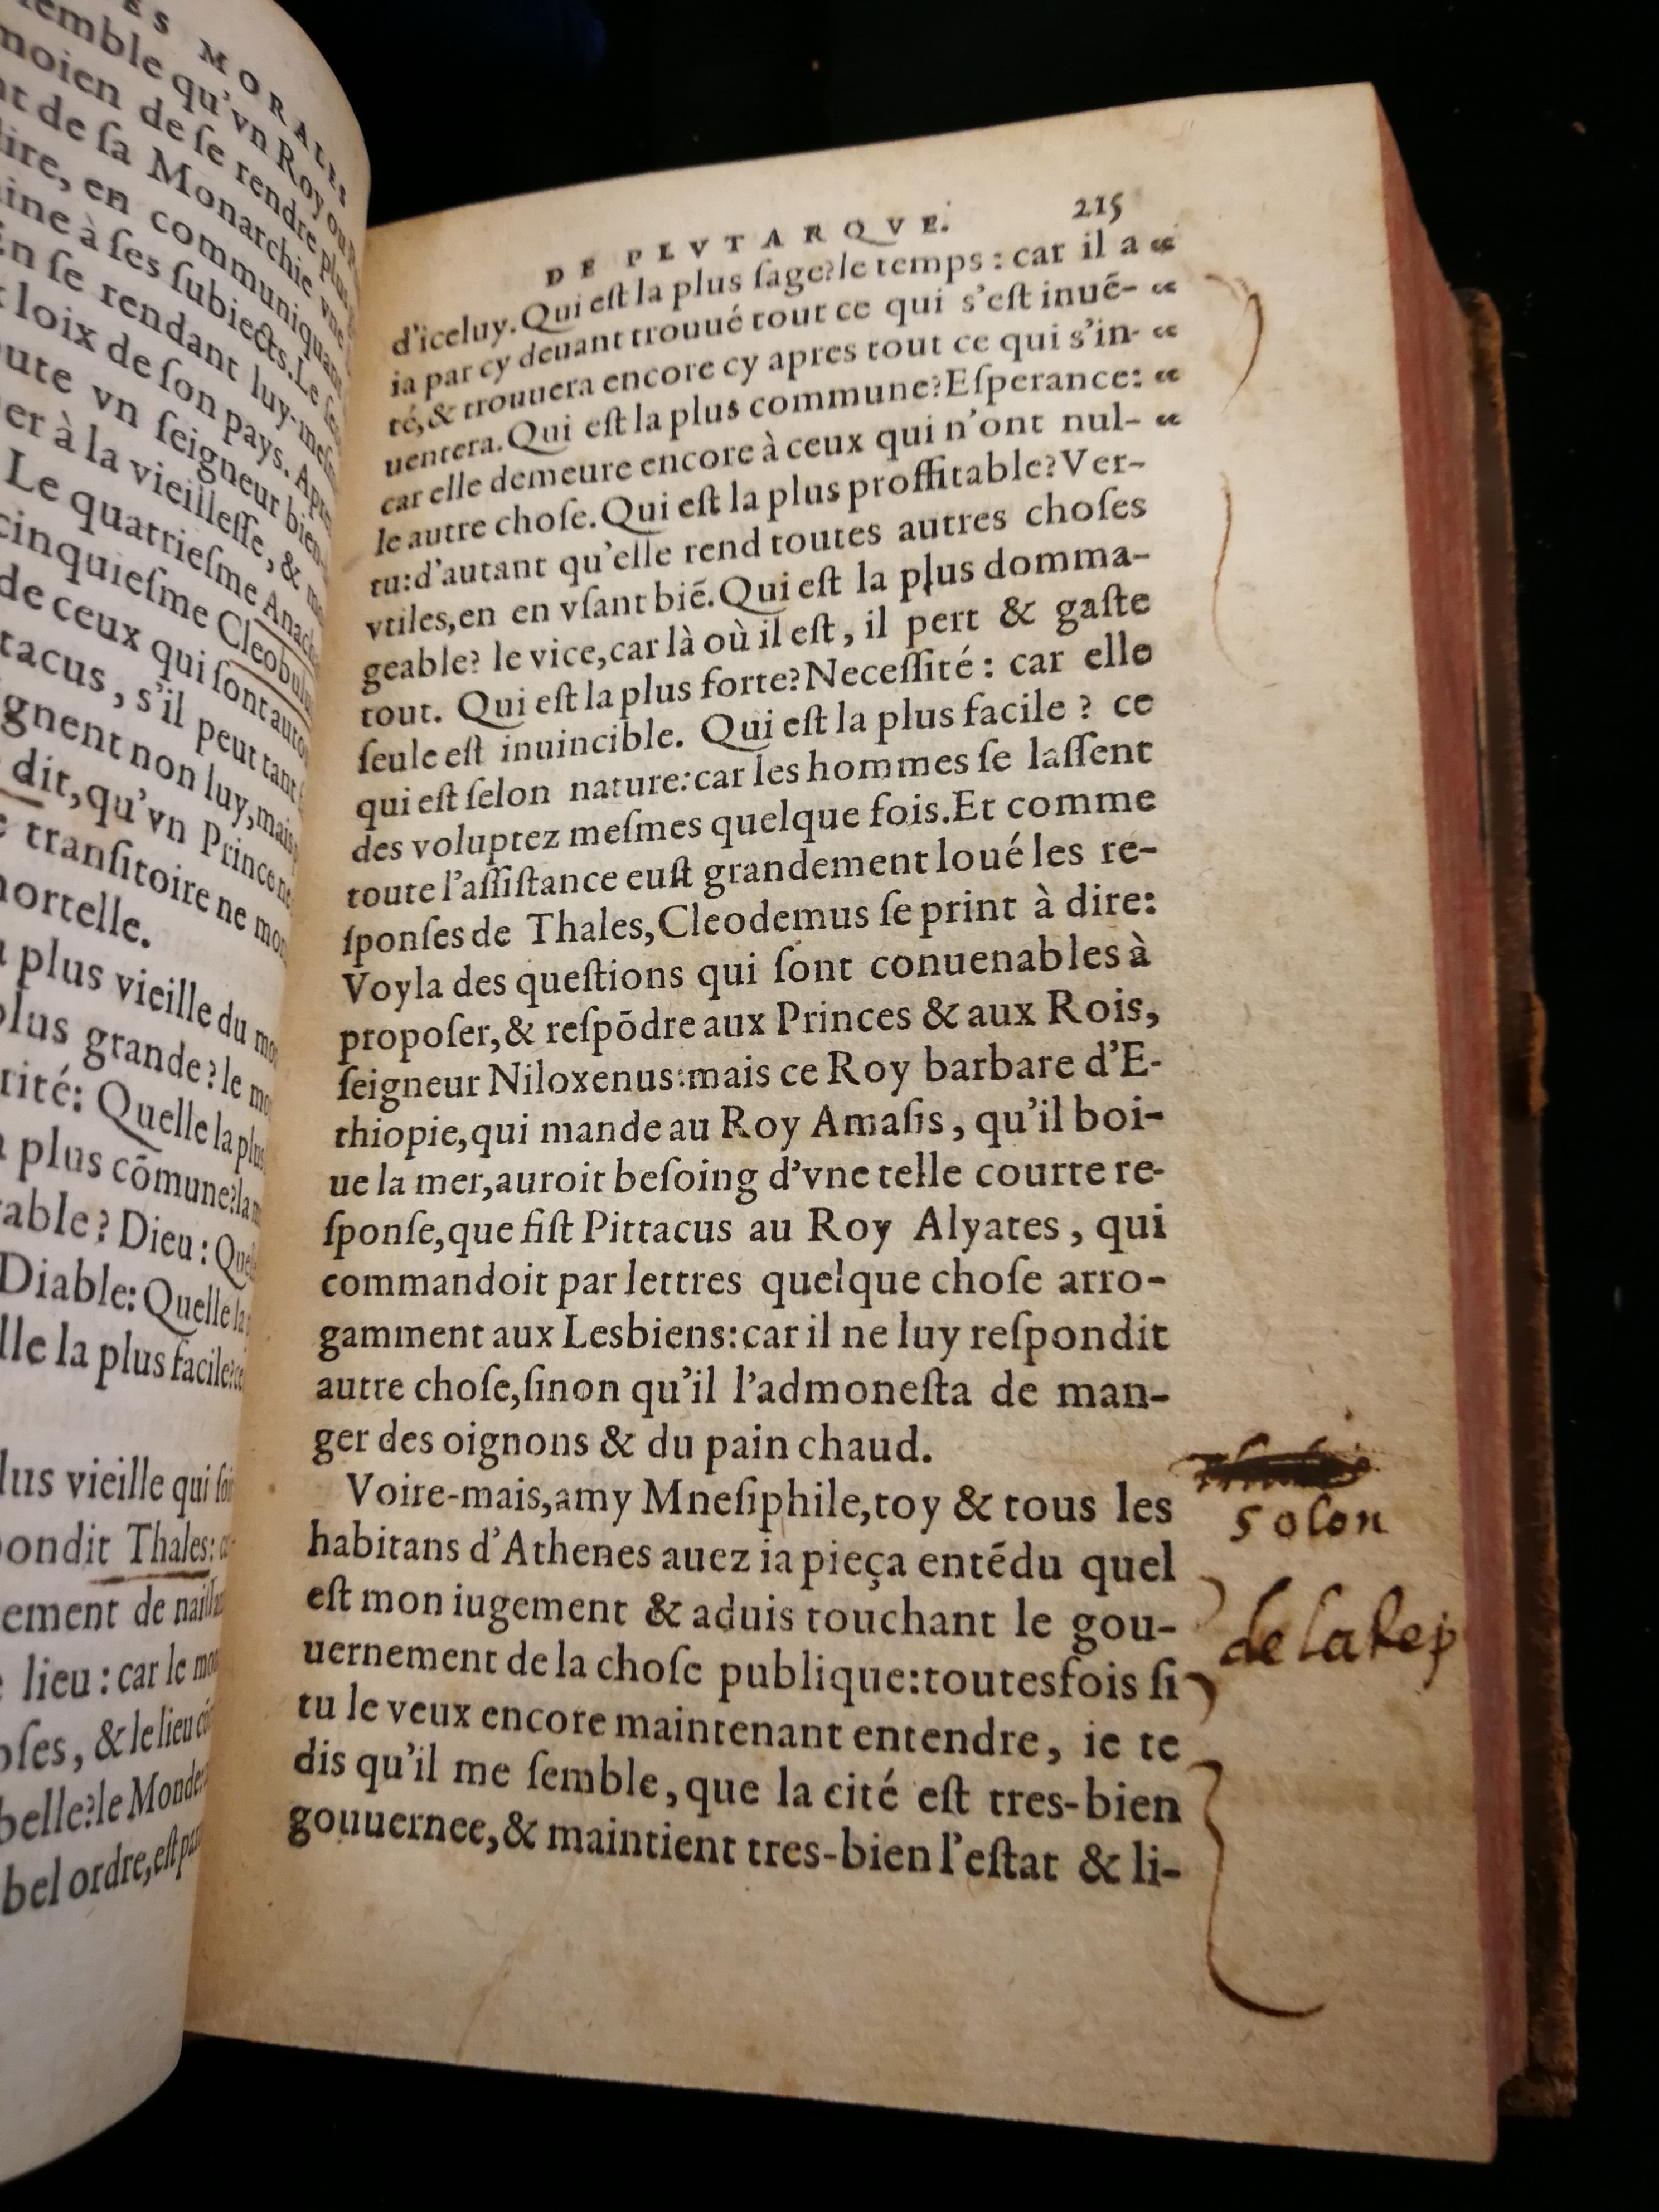 ES MORALES
emble qu'vn Roy ou
moien de ſe rendre plus
nt de ſa Monarchie vne
dire, en communiquant
aine à ſes ſubiects. Le
En ſe rendant luy-meſm
loix de ſon pays. Apre
oute vn ſeigneur bien-
er à la vieilleſſe, &
Le quatrieſme Anach
cinquieſme Cleobulus
de ceux qui ſont autou
tacus, s'il peut tant
gnent non luy, mais
dit, qu'vn Prince ne
tranſitoire ne
mortelle.
plus vieille du
plus grande? le
rité: Quelle la plus
a plus cõmune? la
able? Dieu: Que
Diable: Quelle la
lle la plus facile?
lus vieille qui ſoi
pondit Thales:
ement de naiſſan
lieu: car le mon
oſes, & le lieu
belle? le Monde:
bel ordre, eſt par
DE PLVTARQVE. 215
d'iceluy. Qui eſt la plus ſage? le temps: car il a “
ia par cy deuant trouué tout ce qui s'eſt inuẽ- “
té, & trouuera encore cy apres tout ce qui s'in- “
uentera. Qui eſt la plus commune? Eſperance: “
car elle demeure encore à ceux qui n'ont nul- “
le autre choſe. Qui eſt la plus proffitable? Ver-
tu: d'autant qu'elle rend toutes autres choſes
vtiles, en en vſant biẽ. Qui eſt la plus domma-
geable? le vice, car là où il eſt, il pert & gaſte
tout. Qui eſt la plus forte? Neceſſité: car elle
ſeule eſt inuincible. Qui eſt la plus facile? ce
qui eſt ſelon nature: car les hommes ſe laſſent
des voluptez meſmes quelque fois. Et comme
toute l'aſſiſtance euſt grandement loué les re-
ſponſes de Thales, Cleodemus ſe print à dire:
Voyla des queſtions qui ſont conuenables à
propoſer, & reſpõdre aux Princes & aux Rois,
ſeigneur Niloxenus: mais ce Roy barbare d'E-
thiopie, qui mande au Roy Amaſis, qu'il boi-
ue la mer, auroit beſoing d'vne telle courte re-
ſponſe, que fiſt Pittacus au Roy Alyates, qui
commandoit par lettres quelque choſe arro-
gamment aux Lesbiens: car il ne luy reſpondit
autre choſe, ſinon qu'il l'admoneſta de man-
ger des oignons & du pain chaud.
Voire-mais, amy Mneſiphile, toy & tous les
habitans d'Athenes auez ia pieça entẽdu quel
eſt mon iugement & aduis touchant le gou-
uernement de la choſe publique: toutesfois ſi
tu le veux encore maintenant entendre, ie te
dis qu'il me ſemble, que la cité eſt tres-bien
gouuernee, & maintient tres-bien l'eſtat & li-
solon
de la Rep